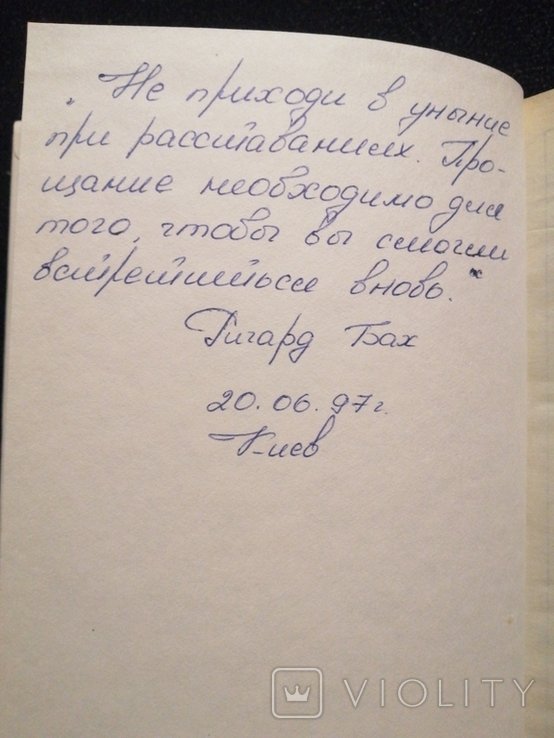 „Не приходи в уныние
при расставаниях. Про-
щание необходимо для
того, чтобы вы смогли
встретиться вновь."
Ричард Бах
20.06.97г.
Киев
VIOLITY